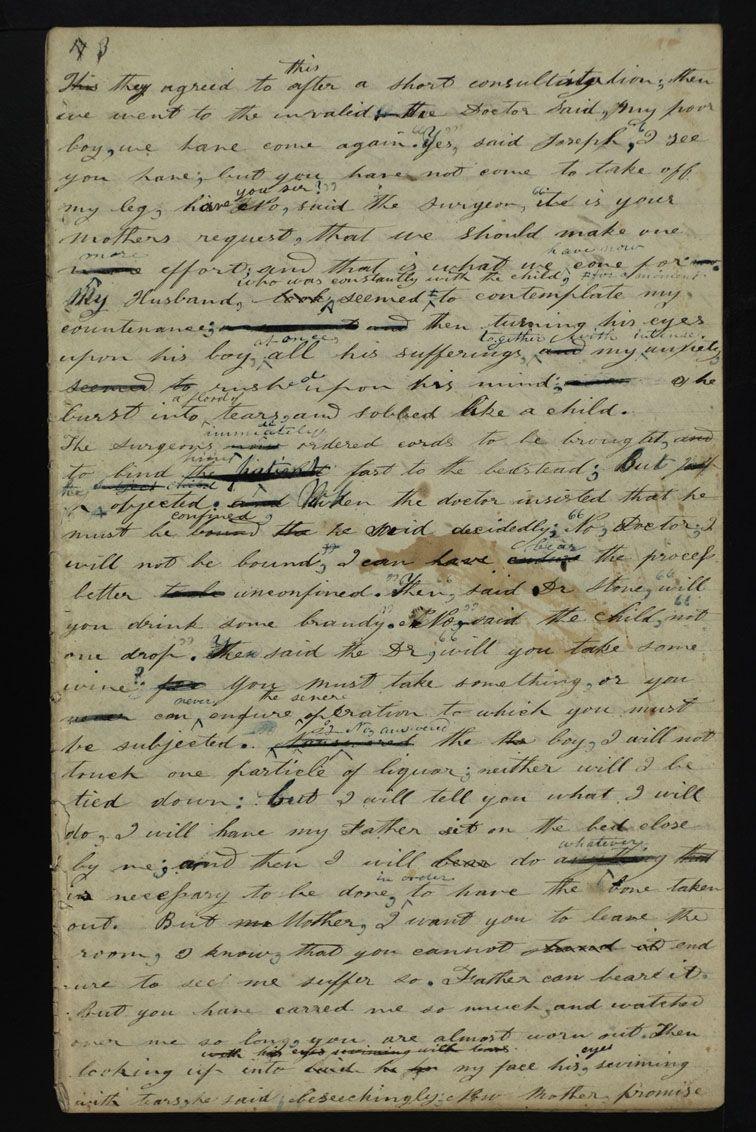 this
This they agreed to after a short consultation; then
we went to the invalid; the Doctor said, "my poor
boy, we have come again." "Yes," said Joseph, "I see
you have; but you have not come to take off
you sir?"
my leg, have "No, said the surgeon, "it is your
mothers request, that we should make one
more have now
effort; and that is what we come for
who was constantly with the child, for a moment
My Husband, seemed to contemplate my
countenance; and then turning his eyes
at once together with intense
upon his boy, all his sufferings, and my anxiety
seemed to rushed upon his mind; he
a flood of
burst into tears, and sobbed like a child.
immediately
The surgeons ordered cords to be brought, and
to bind the patient fast to the bedstead; But
the child
objected. and When the doctor insisted that he
confined,
must be bound he said decidedly; "No, Doctor; I
bear
will not be bound, I can have the process
better to be unconfined." Then, said Dr Stone, "will
you drink some brandy." "No," said the child, "not
one drop." Then said the Dr, "will you take some
wine? you must take something, or you
never the severe
never can endure operation to which you must
No, answered
be subjected. answered the boy, I will not
touch one particle of liquor; neither will I be
tied down: but I will tell you what I will
do, I will have my Father sit on the bed close
whatever
by me; and then I will bear do anything that
in order
is necessary to be done, to have the bone taken
out. But Mother, I want you to leave the
room, I know, that you cannot stand it end
ure to see me suffer so. Father can beare it.
But you have carred me so much, and watched
over me so long, you are almost worn out. Then
with his eyes swimming with tears eyes
looking up into my face his, swiming
with tears, he said, beseechingly: Now Mother, promise